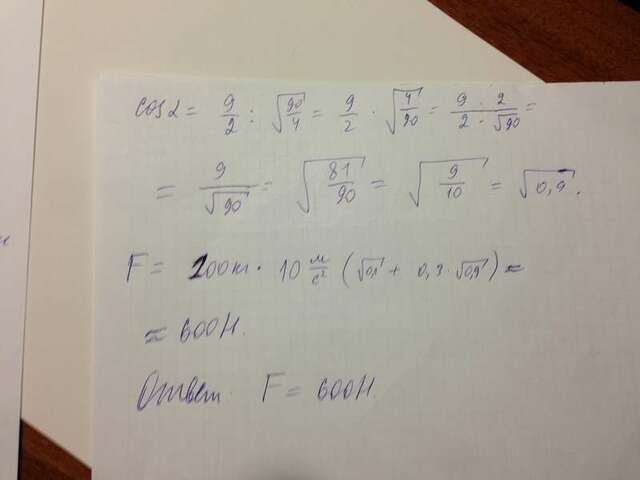 cos α = 9/2 : √(90/4) = 9/2 · √(4/90) = (9 · 2)/(2 · √90) =
= 9/√90 = √(81/90) = √(9/10) = √0,9.
F = 100кг · 10 м/с² (√0,1 + 0,3 · √0,9) ≈
≈ 600Н.
Ответ. F = 600Н.